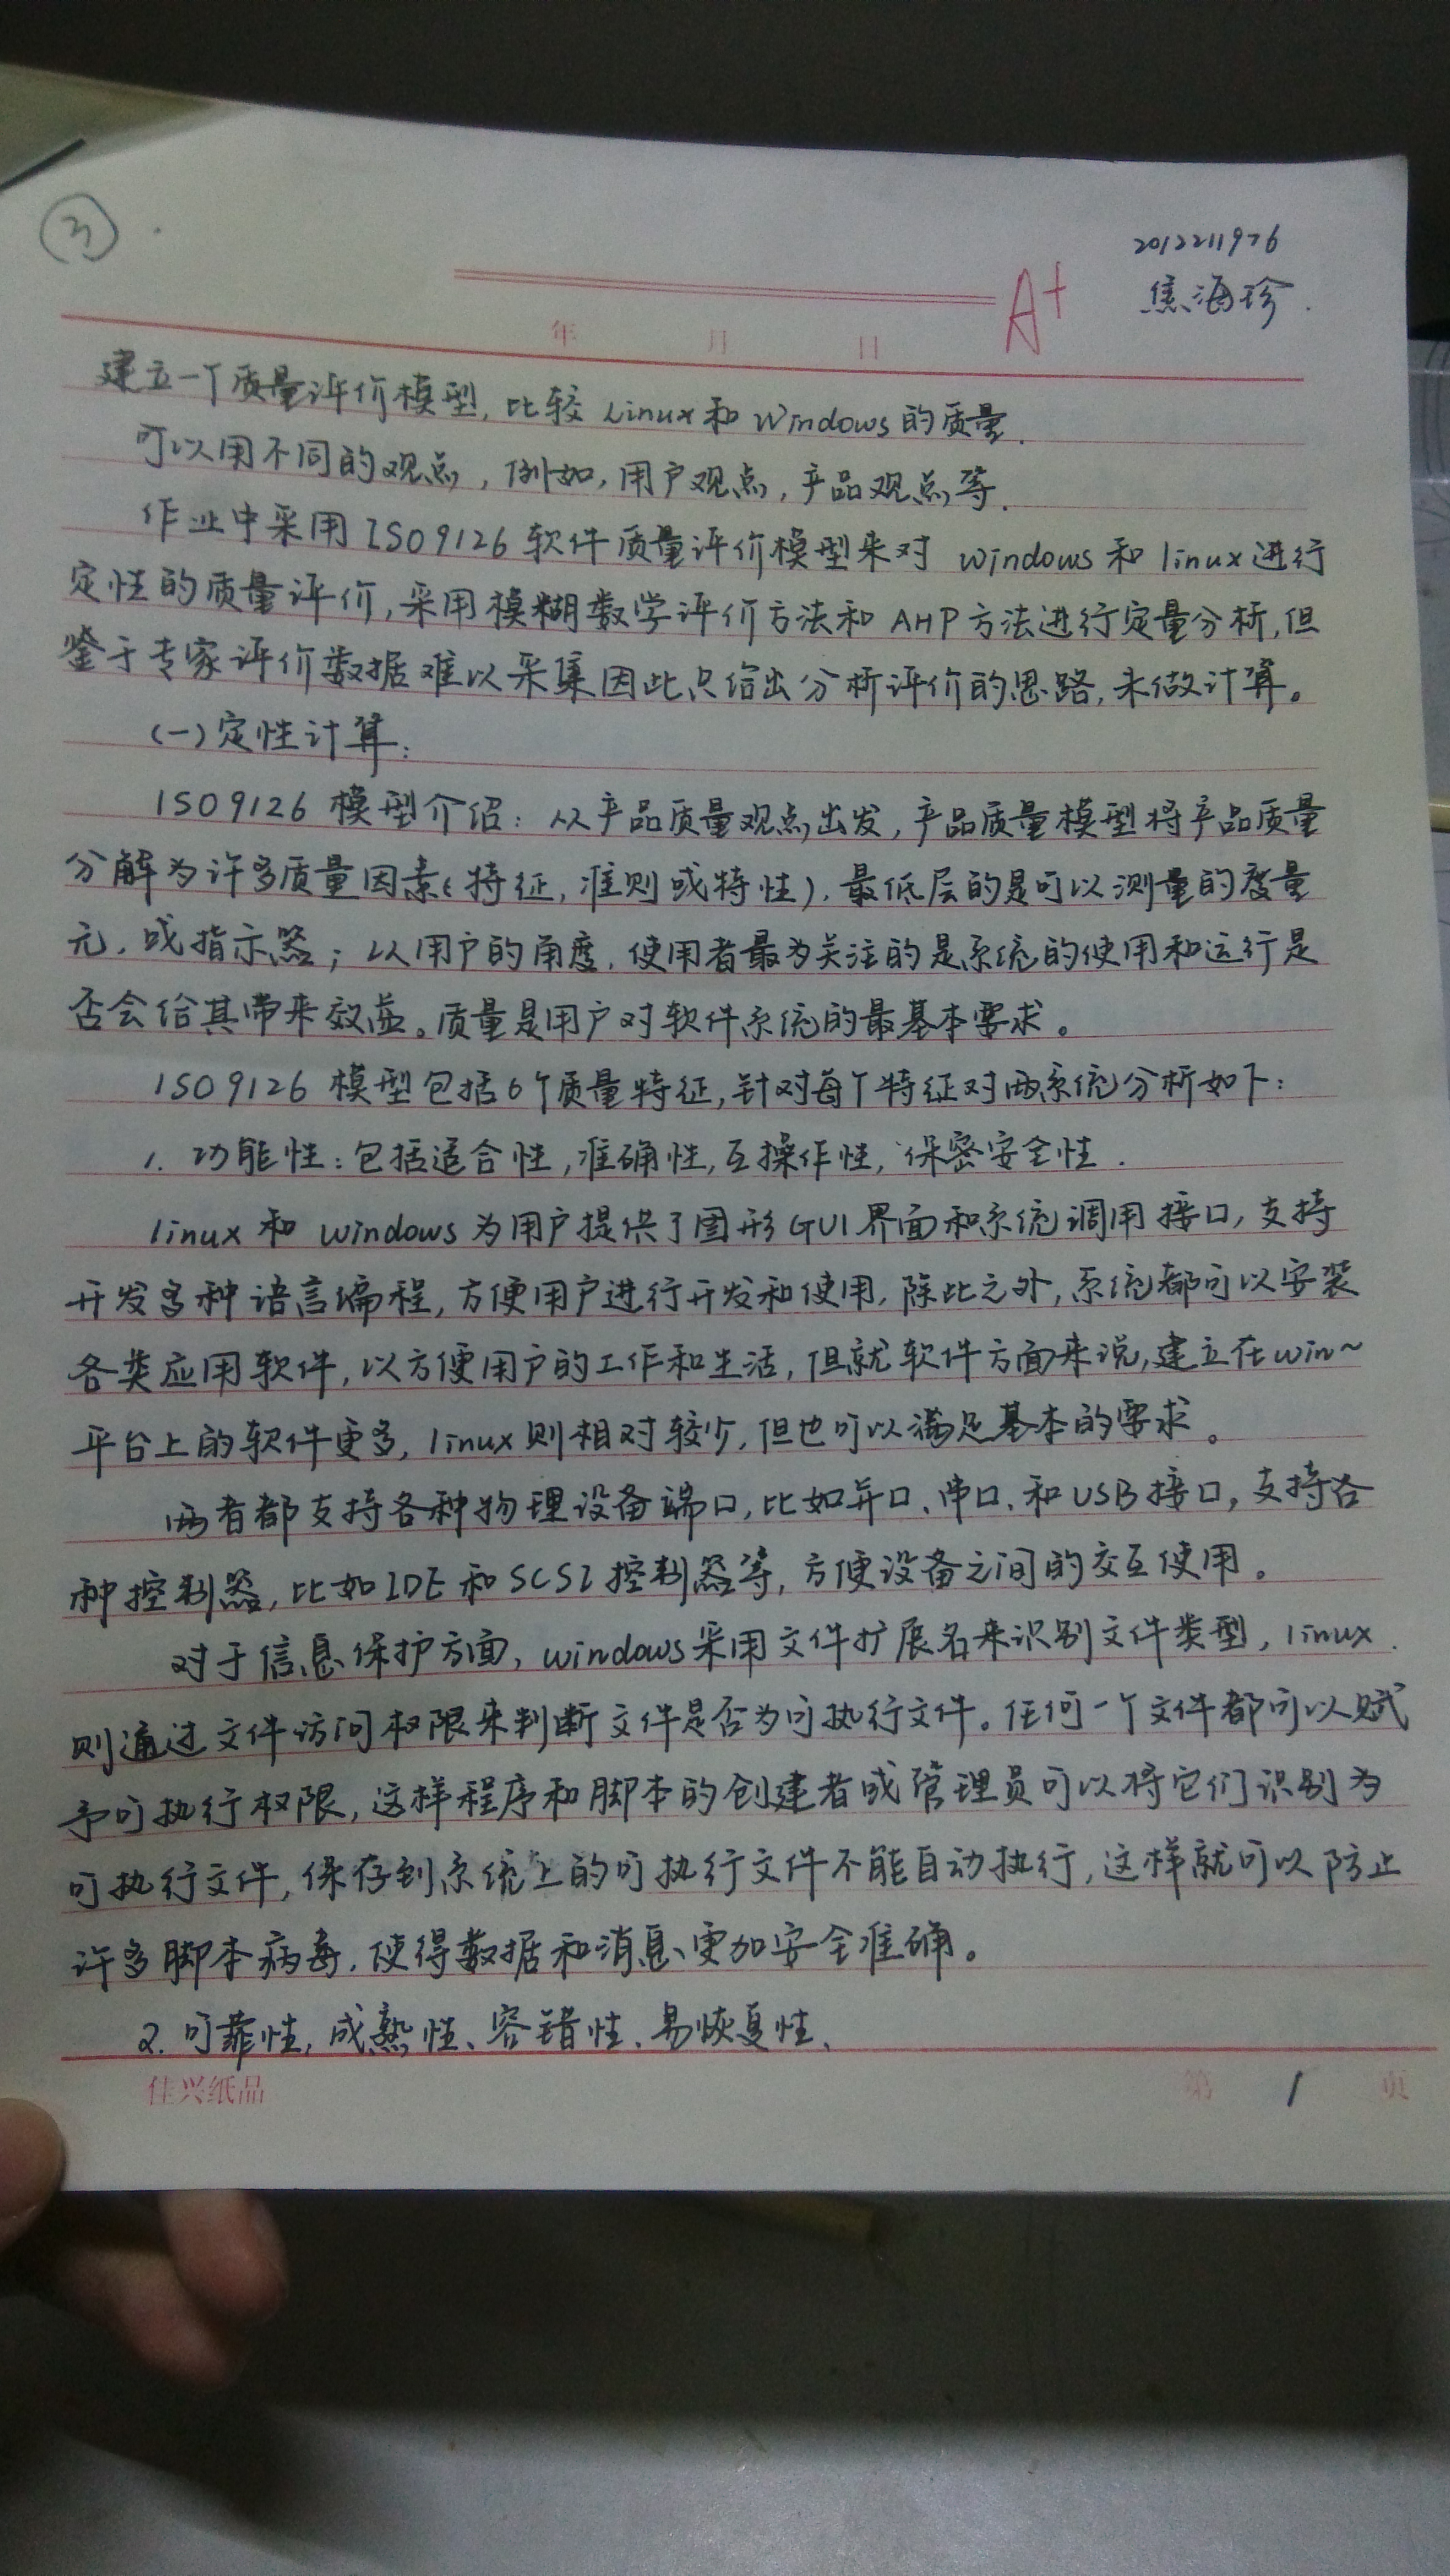 ③
2012211976
焦海珍.
A+
年 月 日
建立一个质量评价模型,比较Linux和Windows的质量.
可以用不同的观点,例如,用户观点,产品观点等.
作业中采用ISO9126软件质量评价模型来对 windows 和 linux进行
定性的质量评价,采用模糊数学评价方法和AHP方法进行定量分析,但
鉴于专家评价数据难以采集因此只给出分析评价的思路,未做计算。
(一)定性计算:
ISO9126 模型介绍:从产品质量观点出发,产品质量模型将产品质量
分解为许多质量因素(特征,准则或特性),最低层的是可以测量的度量
元,或指示器;以用户的角度,使用者最为关注的是系统的使用和运行是
否会给其带来效益。质量是用户对软件系统的最基本要求。
ISO9126 模型包括6个质量特征,针对每个特征对两系统分析如下:
1. 功能性:包括适合性,准确性,互操作性,保密安全性.
linux 和 windows 为用户提供了图形GUI界面和系统调用接口,支持
开发多种语言编程,方便用户进行开发和使用,除此之外,系统都可以安装
各类应用软件,以方便用户的工作和生活,但就软件方面来说,建立在win~
平台上的软件更多,linux则相对较少,但也可以满足基本的要求。
两者都支持各种物理设备端口,比如并口、串口、和USB接口,支持各
种控制器,比如IDE和SCSI控制器等,方便设备之间的交互使用。
对于信息保护方面,windows采用文件扩展名来识别文件类型,linux
则通过文件访问权限来判断文件是否为可执行文件。任何一个文件都可以赋
予可执行权限,这样程序和脚本的创建者或管理员可以将它们识别为
可执行文件,保存到系统上的可执行文件不能自动执行,这样就可以防止
许多脚本病毒,使得数据和消息更加安全准确。
2. 可靠性,成熟性、容错性、易恢复性、
佳兴纸品
第 1 页